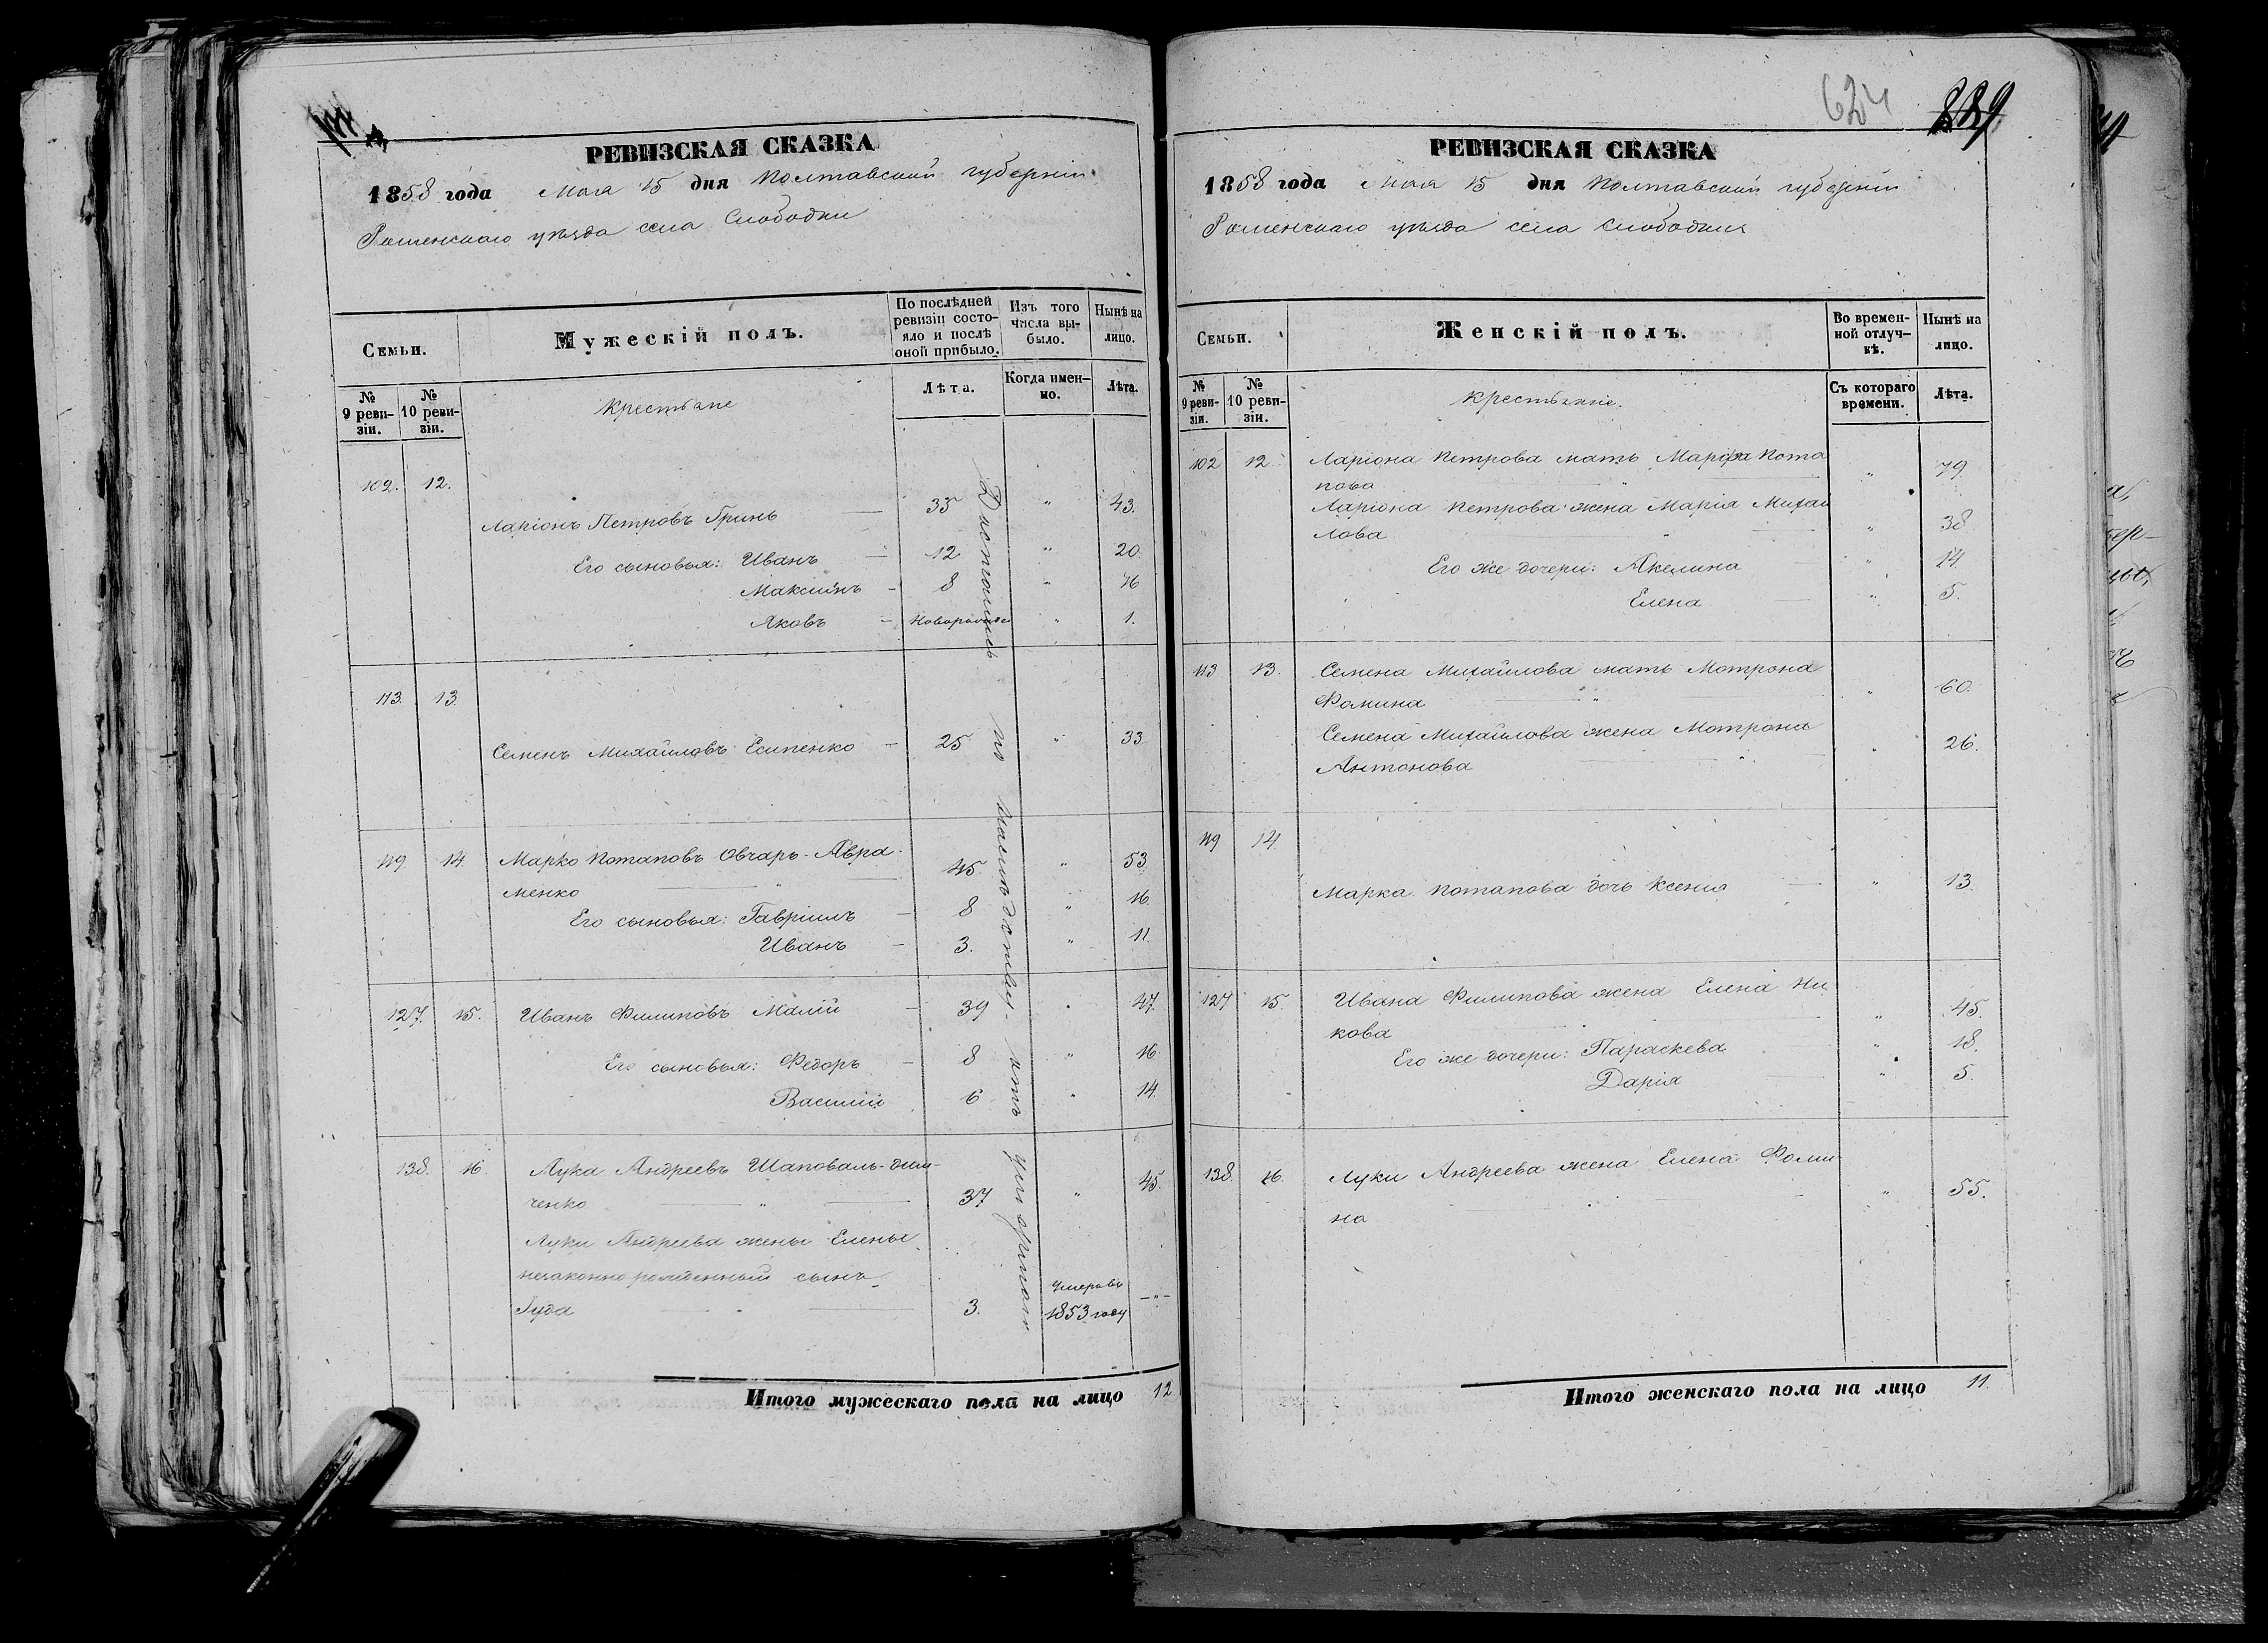 РЕВИЗСКАЯ СКАЗКА
1858 года Мая 15 дня Полтавской губерніи
Роменскаго уѣзда села Слободки
Семьи.
Мужескій полъ.
По послѣдней ревизіи состояло и послѣ оной прибыло.
Изъ того числа выбыло.
Нынѣ на лицо.
№ 9 ревизіи.
№ 10 ревизіи.
Крестьяне
Лѣта.
Когда именно.
Лѣта.
102. 12.
Ларіонъ Петровъ Гринь 35 " 43.
Его сыновья: Иванъ 12 " 20.
Максимъ 8 " 16
Яковъ " 1.
113. 13.
Семенъ Михайловъ Есипенко 25 " 33
119 14. Марко Потаповъ Овчаръ-Авра-
менко " 45. " 53
Его сыновья: Гавріилъ 8 " 16.
Иванъ 3. " 11.
127. 15. Иванъ Филиповъ Малій 39 " 47.
Его сыновья: Федоръ 8 " 16
Василій 6 " 14.
138. 16. Лука Андреевъ Шаповаль-
ченко " 37 " 45.
Луки Андреева жены Елены
незаконнорожденный сынъ
Іуда " 3. Умеръ въ 1853 году — " —
Достались по
Итого мужескаго пола на лицо 12
624
РЕВИЗСКАЯ СКАЗКА
1858 года Мая 15 дня Полтавской губерніи
Роменскаго уѣзда села Слободки
Семьи.
Женскій полъ.
Во временной отлучкѣ.
Нынѣ на лицо.
№ 9 ревизіи.
№ 10 ревизіи.
Крестьянне.
Съ котораго времени.
Лѣта.
102 12. Ларіона Петрова мать Марфа Пота
пова " " 79.
Ларіона Петрова жена Марія Михай
лова " " 38
Его же дочери: Акелина " 14.
Елена " 5.
113 13. Семена Михайлова мать Мотрона
Фомина " " 60.
Семена Михайлова жена Мотрона
Антонова " " 26.
119 14.
Марка Потапова дочь Ксенія " 13.
127 15. Ивана Филипова жена Елена Ни
кова " 45.
Его же дочери: Параскева " 18.
Дарія " 5.
138. 16. Луки Андреева жена Елена Фоми
на " 55.
Итого женскаго пола на лицо 11.